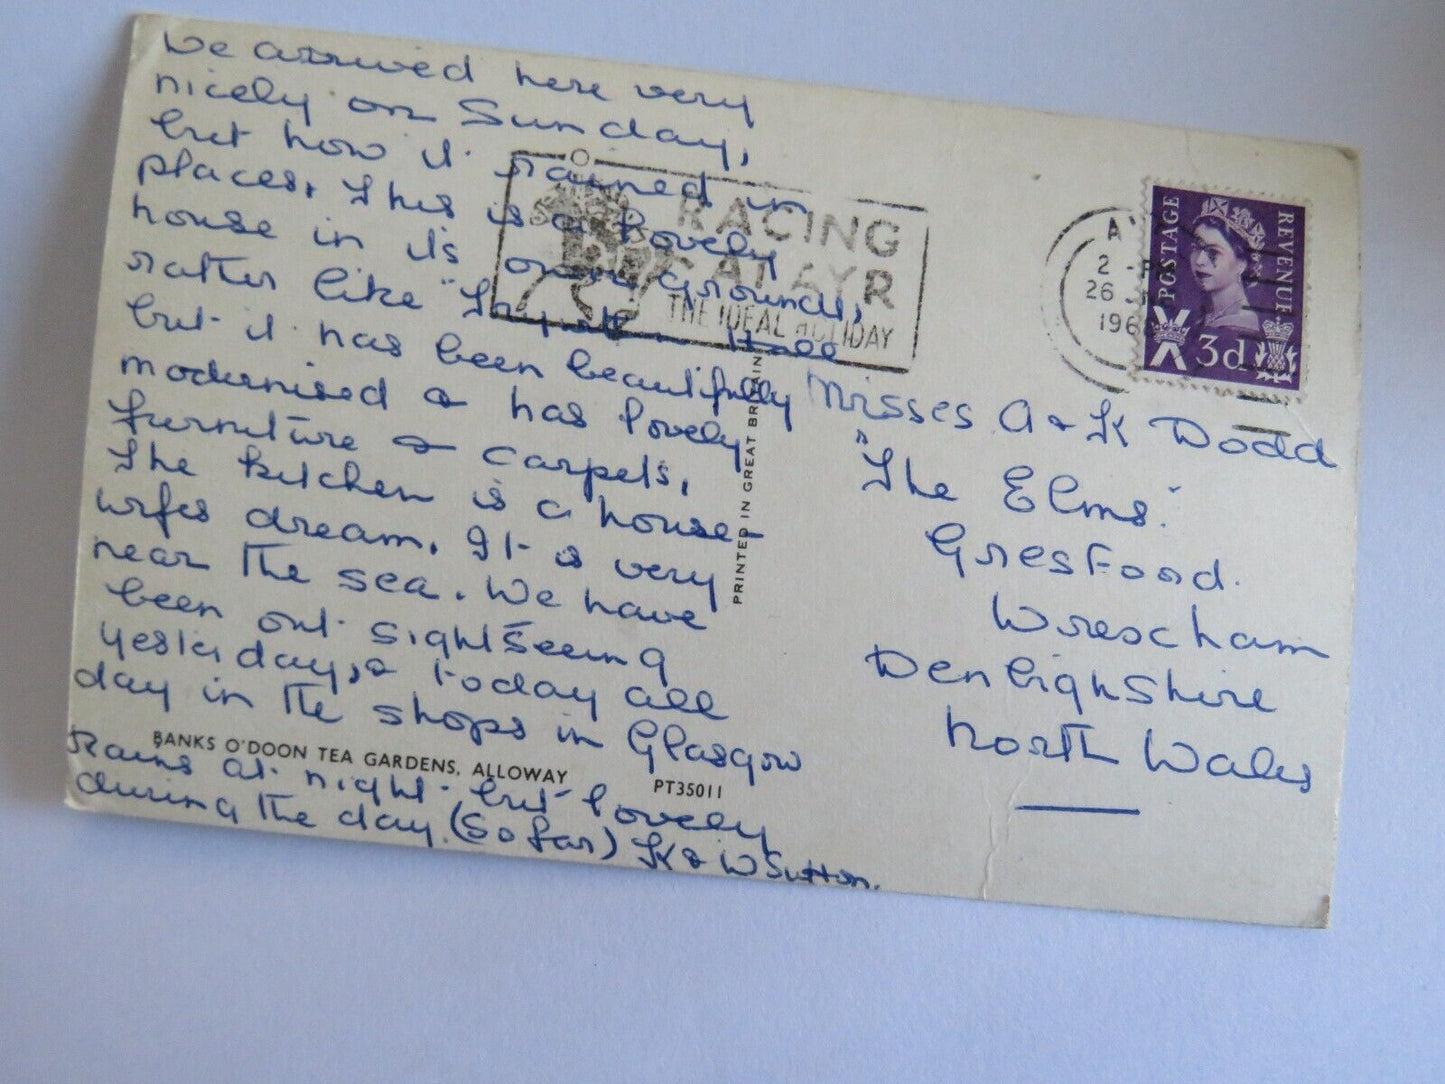 We arrived here very
nicely on Sunday,
but how it rained in
places. This is a lovely
house in it's own grounds,
rather like " Hall
but it has been beautifully
modernised & has lovely
furniture & carpets,
The kitchen is a house-
wifes dream. It is very
near the sea. We have
been out sightseeing
yesterday, & today all
day in the shops in Glasgow
Rains at night but lovely
during the day. (So far) K & W Sutton.
BANKS O'DOON TEA GARDENS, ALLOWAY
PT35011
PRINTED IN GREAT BRITAIN
RACING
AT AYR
THE IDEAL HOLIDAY
2 - PM
26
196
POSTAGE
REVENUE
3d
Misses A & K Dodd
"The Elms".
Gresford.
Wrescham
Denbighshire
North Wales